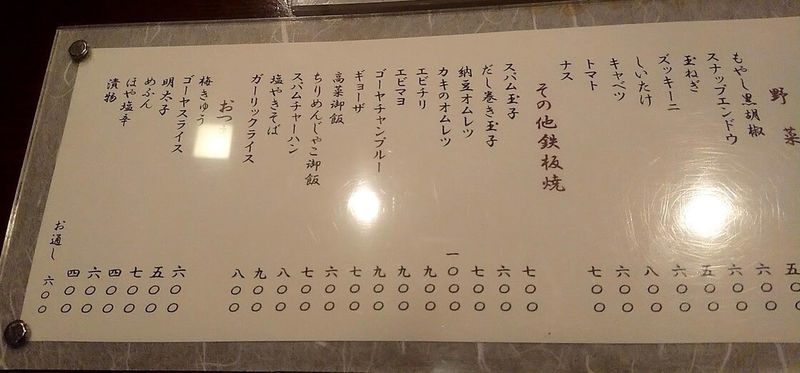 野菜
もやし黒胡椒 五〇〇
スナップエンドウ 六〇〇
玉ねぎ 六〇〇
ズッキーニ 五〇〇
しいたけ 六〇〇
キャベツ 八〇〇
トマト 六〇〇
ナス 七〇〇
その他鉄板焼
スパム玉子 七〇〇
だし巻き玉子 六〇〇
納豆オムレツ 七〇〇
カキのオムレツ 一〇〇〇
エビチリ 九〇〇
エビマヨ 九〇〇
ゴーヤチャンプルー 九〇〇
ギョーザ 七〇〇
高菜御飯 六〇〇
ちりめんじゃこ御飯 七〇〇
スパムチャーハン 八〇〇
塩やきそば 九〇〇
ガーリックライス 八〇〇
梅きゅう 六〇〇
ゴーヤスライス 五〇〇
明太子 七〇〇
めふん 四〇〇
ほや塩辛 六〇〇
漬物 四〇〇
お通し 六〇〇